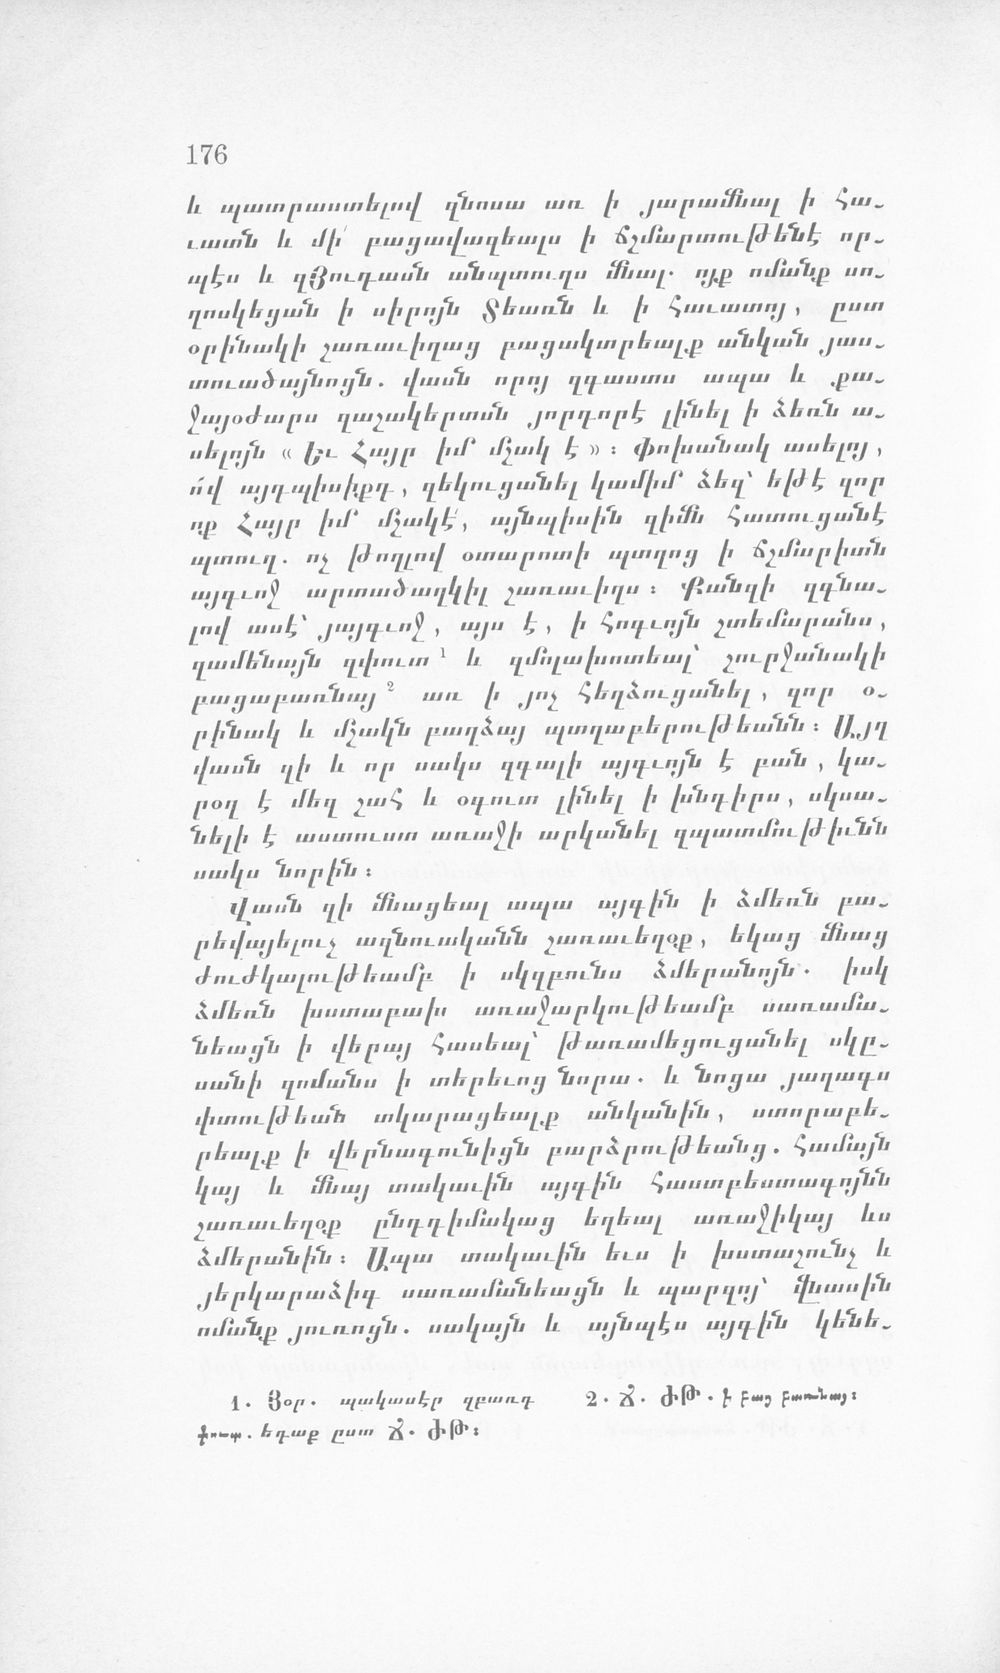 176
և պատրաստելով զնոսա առ ի յարամնալ ի հա-
ւատն և մի՛ բացավազեալս ի ճշմարտութենէ որ-
պէս և զՅուդասն անպտուղս մնալ. ոյք ոմանք սո-
ղոսկեցան ի սիրոյն Տեառն և ի հաւատոյ, ըստ
օրինակի շառաւիղաց բացակտրեալք անկան յաս-
տուածայնոցն. վասն որոյ զգաստս ապա և քա-
ջայօժարս զաշակերտսն յորդորէ լինել ի ձեռն ա-
սելոյն « Եւ Հայր իմ մշակ է » : Փոխանակ ասելոյ,
ո՛վ այդպիսիքդ, զեկուցանել կամիմ ձեզ՝ եթէ զոր
ոք Հայր իմ մշակէ՛, այնպիսին զիմն հատուցանէ
պտուղ. ոչ թողլով օտարոտի պտղոց ի ճշմարիտն
այգւոջ արտածաղկիլ շառաւիղս : Քանզի զգնա-
լով ասէ՝ յայգւոջ, այս է, ի հոգւոյն շտեմարանս,
զամենայն զփուտ 1 և զմոլախոտեալ՝ շուրջանակի
բացաբառնայ 2 առ ի յոչ հեղձուցանել, զոր օ-
րինակ և մշակն բաղձայ պտղաբերութեանն : Այղ
վասն զի և որ սակս զգալի այգւոյն է բան, կա-
րօղ է մեզ շահ և օգուտ լինել ի խնդիրս, սկսա-
նելի է աստուստ առաջի արկանել զպատմութիւնն
սակս նորին :
Վասն զի մնացեալ ապա այգին ի ձմեռն բա-
րեվայելուչ ազնուականն շառաւեղօք, եկաց մնաց
ժուժկալութեամբ ի սկզբունս ձմերանոյն. իսկ
ձմեռն խստաբախ առաջարկութեամբ սառամա-
նեացն ի վերայ հասեալ՝ թառամեցուցանել սկը-
սանի զոմանս ի տերեւոց նորա. և նոցա յաղագս
փտութեան տկարացեալք անկանին, ստորաբե-
րեալք ի վերնագունիցն բարձրութեանց. համայն
կայ և մնայ տակաւին այգին հաստբեստագոյնն
շառաւեղօք ընդդիմակաց եղեալ առաջիկայ ևս
ձմերանին : Ապա տակաւին եւս ի խստաշունչ և
յերկարաձիգ սառամանեացն և պարզոյ՝ վնասին
ոմանք յուռոցն. սակայն և այնպէս այգին կենե-
1. Յօր. պակասէր զբառդ
փուտ. եդաք ըստ Ճ. ԺԹ :
2. Ճ. ԺԹ. ի բաց բառնայ :